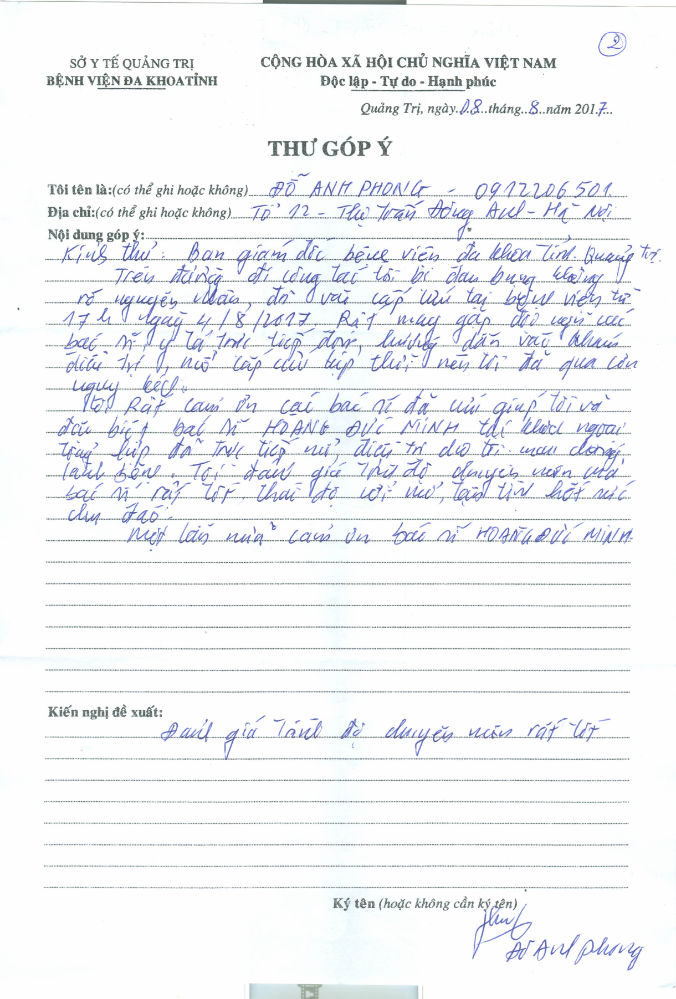 2
SỞ Y TẾ QUẢNG TRỊ
BỆNH VIỆN ĐA KHOA TỈNH
CỘNG HÒA XÃ HỘI CHỦ NGHĨA VIỆT NAM
Độc lập - Tự do - Hạnh phúc
Quảng Trị, ngày 08 tháng 8 năm 2017
THƯ GÓP Ý
Tôi tên là: (có thể ghi hoặc không) ĐỖ ANH PHONG - 0912206501
Địa chỉ: (có thể ghi hoặc không) Tổ 12 - Thị Trấn Đông Anh - Hà Nội
Nội dung góp ý:
Kính thư: Ban giám đốc bệnh viện đa khoa tỉnh Quảng trị.
Trên đường đi công tác tôi bị đau bụng không
rõ nguyên nhân, đã vào cấp cứu tại bệnh viện từ
17h ngày 4/8/2017. Rất may gặp đội ngũ các
bác sĩ y tá trực tiếp đón, hướng dẫn vào khám
điều trị, mổ cấp cứu kịp thời nên tôi đã qua cơn
nguy kịch.
Tôi Rất cảm ơn các bác sĩ đã cứu giúp tôi và
đặc biệt bác sĩ HOÀNG ĐỨC MINH tại khoa ngoại
tổng hợp đã trực tiếp mổ, điều trị cho tôi mau chóng
lành bệnh. Tôi đánh giá trình độ chuyên môn của
bác sĩ rất tốt. thái độ cởi mở, tận tình hết sức
chu đáo.
Một lần nữa cảm ơn bác sĩ HOÀNG ĐỨC MINH.
Kiến nghị đề xuất:
Đánh giá trình độ chuyên môn rất tốt
Ký tên (hoặc không cần ký tên)
Đỗ Anh phong